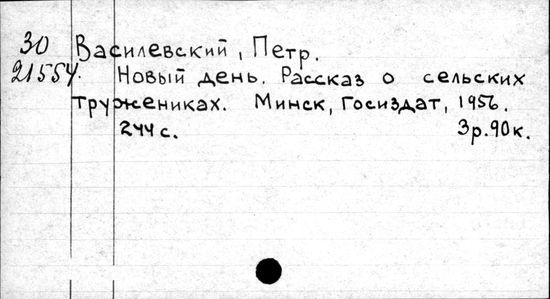 30 Василевский, Петр.
21554. Новый день. Рассказ о сельских
тружениках. Минск, Госиздат, 1956.
244 с. 3р.90к.